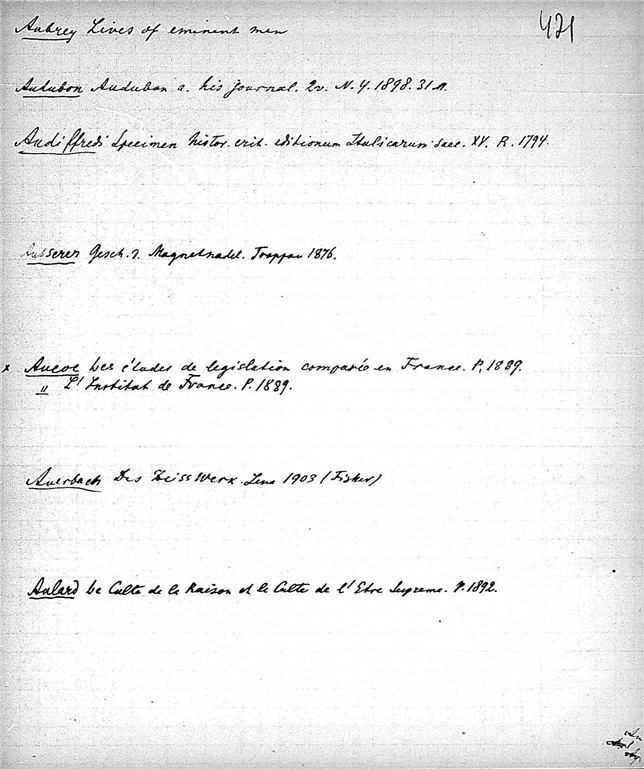 421
Aubrey Lives of eminent men
Audubon Audubon a. his journal. 2v. N.Y. 1898. 31
Audiffredi Specimen histor. crit. editionum Italicarum saec. XV. R. 1794.
Ausserer Gesch. d. Magnetnadel. Troppau 1876.
x Aucoc Les études de législation comparée en France. P. 1889.
" L'Institut de France. P. 1889.
Auerbach Das Zeiss Werk. Jena 1903 (Fisher)
Aulard Le Culte de la Raison et le Culte de l'Etre Supreme. P. 1892.